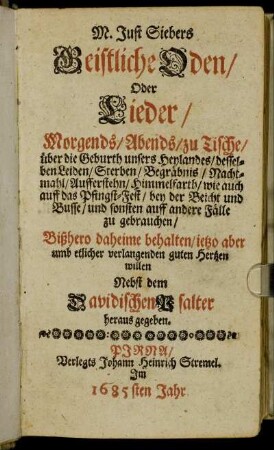 M. Just Siebers
Geistliche Oden/
Oder
Lieder/
Morgends/Abends/zu Tische/
über die Geburth unsers Heylandes/dessel-
ben Leiden/Sterben/Begräbnis/Nacht-
mahl/Aufferstehn/Himmelfarth/wie auch
auff das Pfingst-Fest/bey der Beicht und
Busse/und sonsten auff andere Fälle
zu gebrauchen/
Bißhero daheime behalten/ietzo aber
umb etlicher verlangenden guten Hertzen
willen
Nebst dem
Davidischen Psalter
heraus gegeben.
PIRNA/
Verlegts Johann Heinrich Stremel.
Im
1685sten Jahr